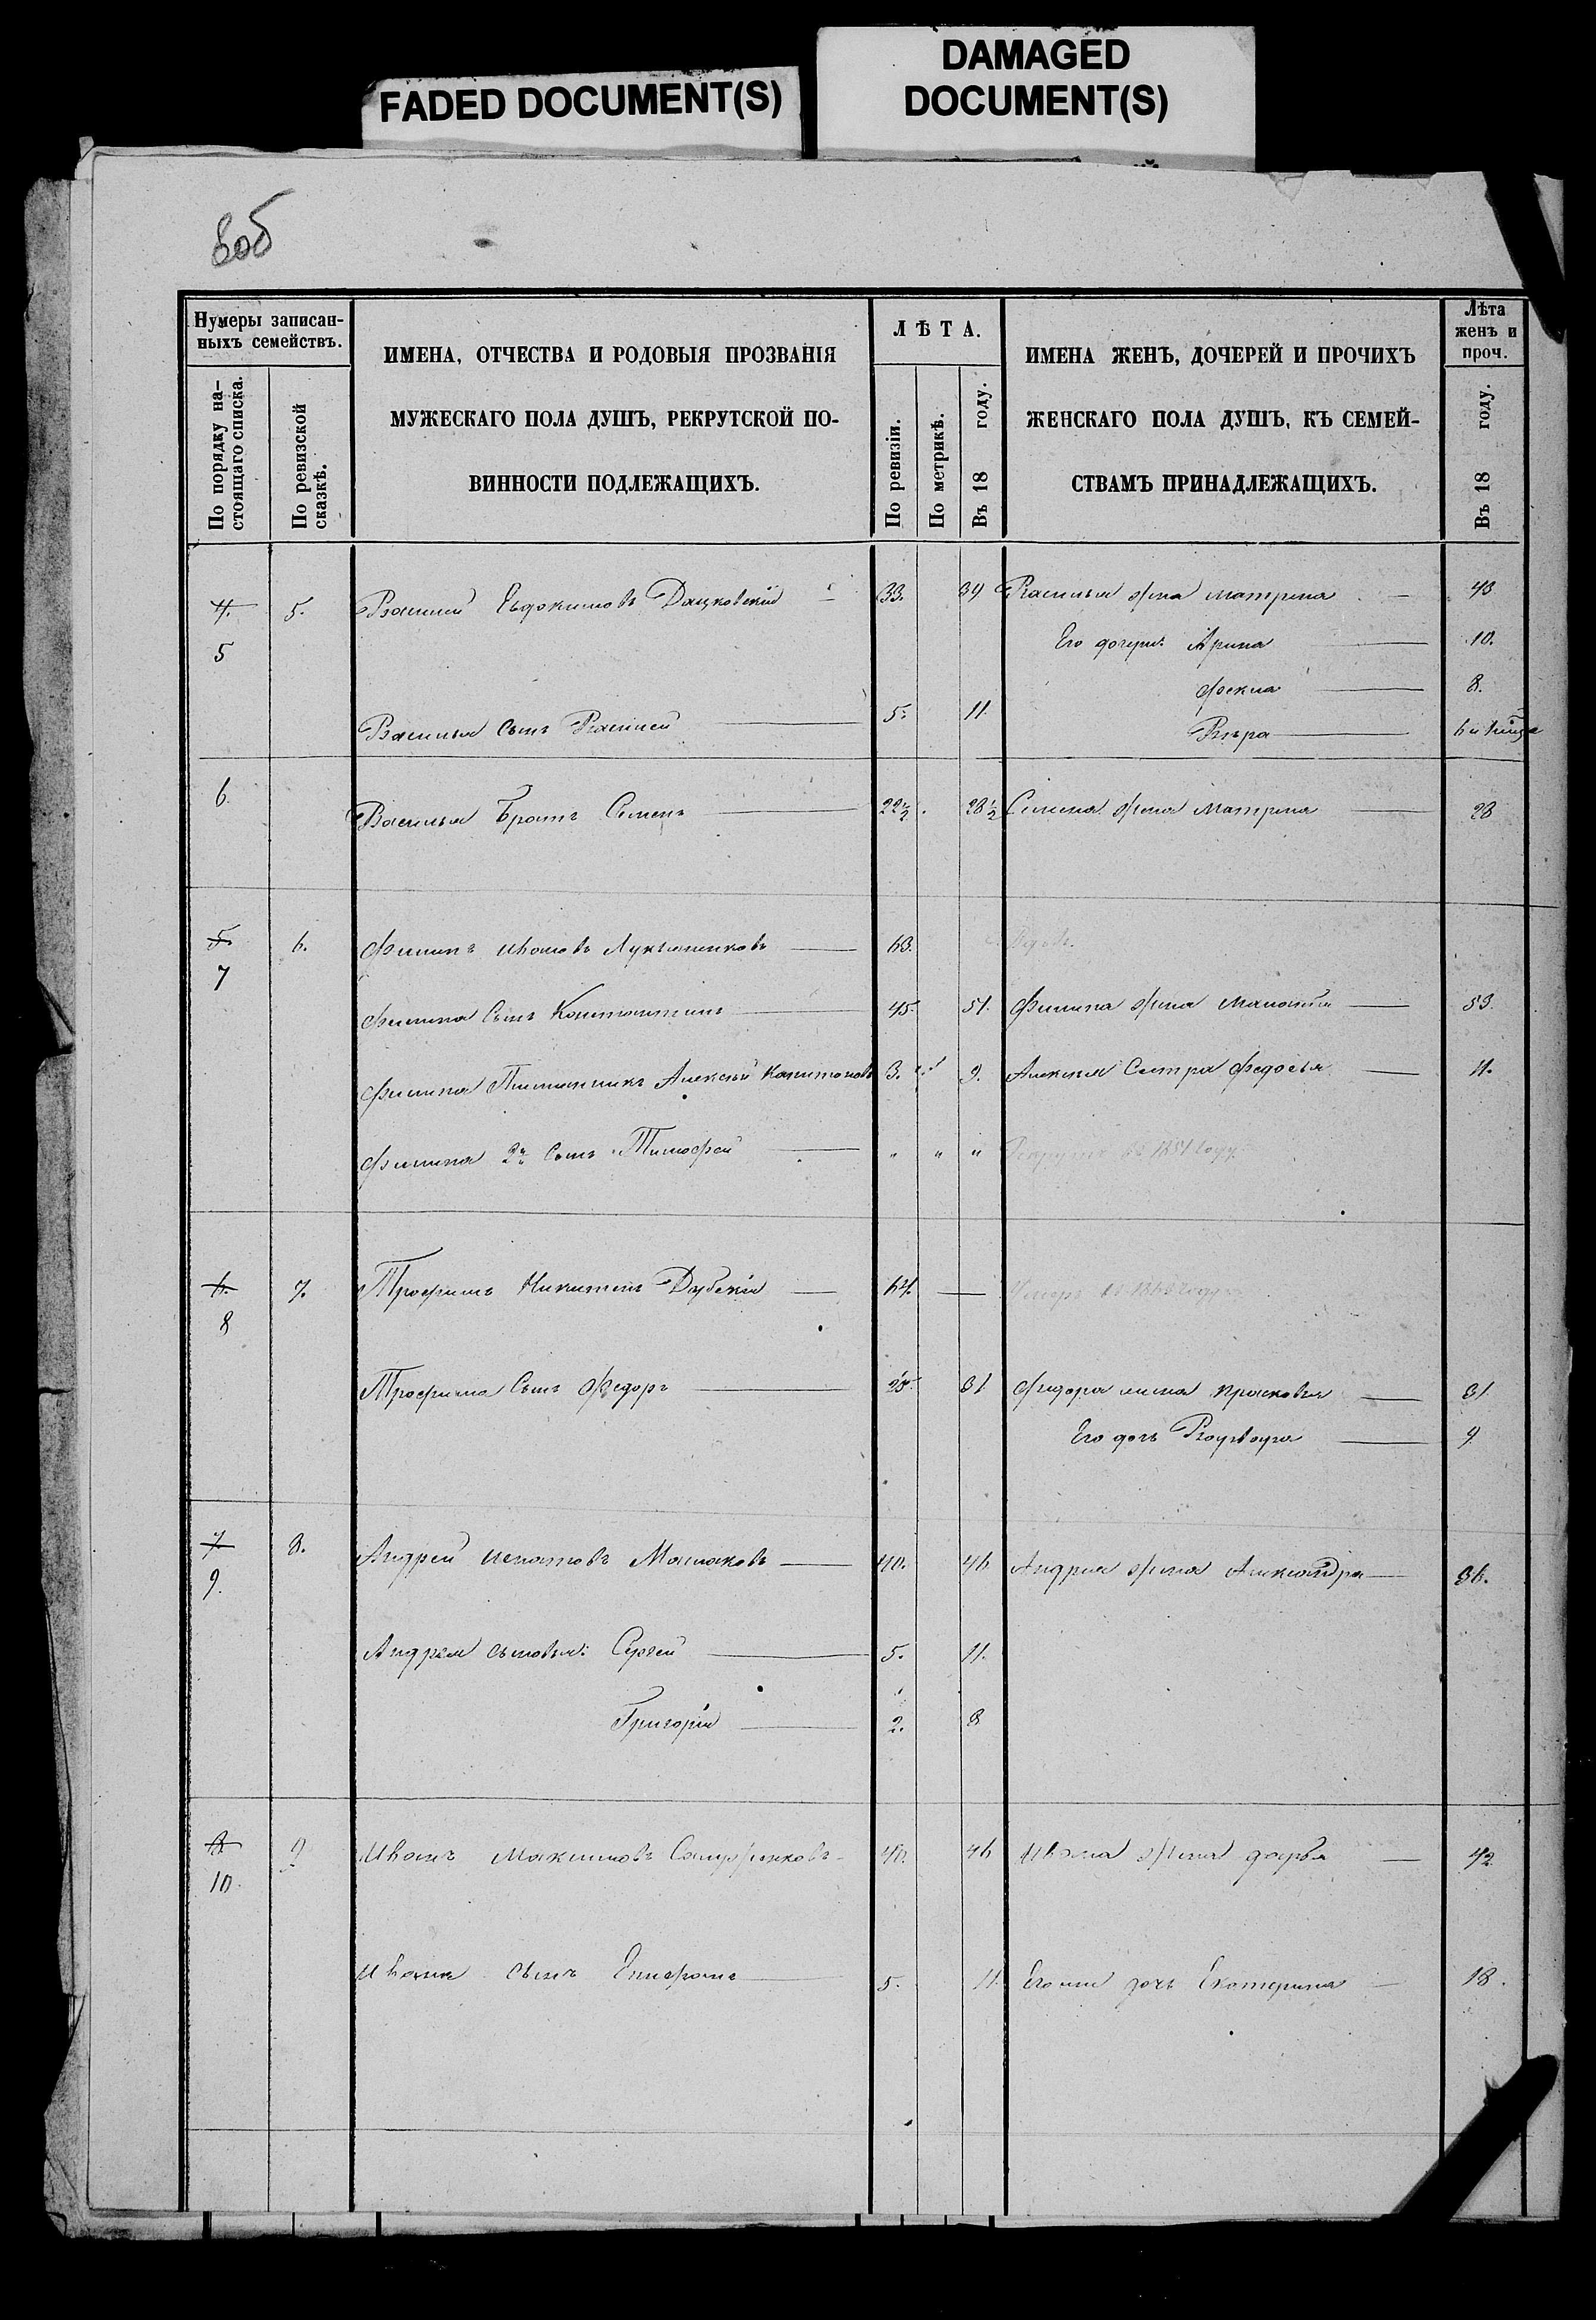 FADED DOCUMENT(S)
DAMAGED
DOCUMENT(S)
Нумеры записан-
ныхъ семействъ.
По порядку на-
стоящаго списка.
По ревизской
сказкѣ.
ИМЕНА, ОТЧЕСТВА И РОДОВЫЯ ПРОЗВАНІЯ
МУЖЕСКАГО ПОЛА ДУШЪ, РЕКРУТСКОЙ ПО-
ВИННОСТИ ПОДЛЕЖАЩИХЪ.
ЛѢТА.
По ревизіи.
По метрикѣ.
Въ 18 году.
ИМЕНА ЖЕНЪ, ДОЧЕРЕЙ И ПРОЧИХЪ
ЖЕНСКАГО ПОЛА ДУШЪ, КЪ СЕМЕЙ-
СТВАМЪ ПРИНАДЛЕЖАЩИХЪ.
Лѣта
женъ и
проч.
Въ 18 году.
4. 5. Василий Евдокимовъ Дацковскій 33. 39 Василья жена матрена 43
5 Его дочери: Арина 10.
Фекла 8.
Василья Сынъ Василей 5. 11. Вѣра
6. Василья Братъ Семенъ 22½ 28½ Семена жена Матрена 28
5. 6. Филипъ Ивановъ Лукьянчиковъ 63.
7
Филипа Сынъ Константинъ 45. 51. Филипа жена Маланья 53.
Филипа Племянникъ Алексѣй Капитоновъ 3. 9. Алексѣя Сестра Федосья 11.
Филипа 2й Сынъ Тимофей " " " 1851 году
6. 7. Трофимъ Никитинъ Дубскій 64. Умеръ
8
Трофима Сынъ Федоръ 25. 31 Федора жена Прасковья 31
Его дочь Варвара 9.
7. 8. Андрей Игнатовъ Маслаковъ 40. 46 Андрея жена Александра 36.
9.
Андрея сыновья: Сергей 5. 11.
Григорій 2. 8
8 9 Иванъ Максимовъ 40. 46 Ивана жена дарья 42
10.
Ивана сынъ Епифанъ 5. 11. дочь Екатерина 18.